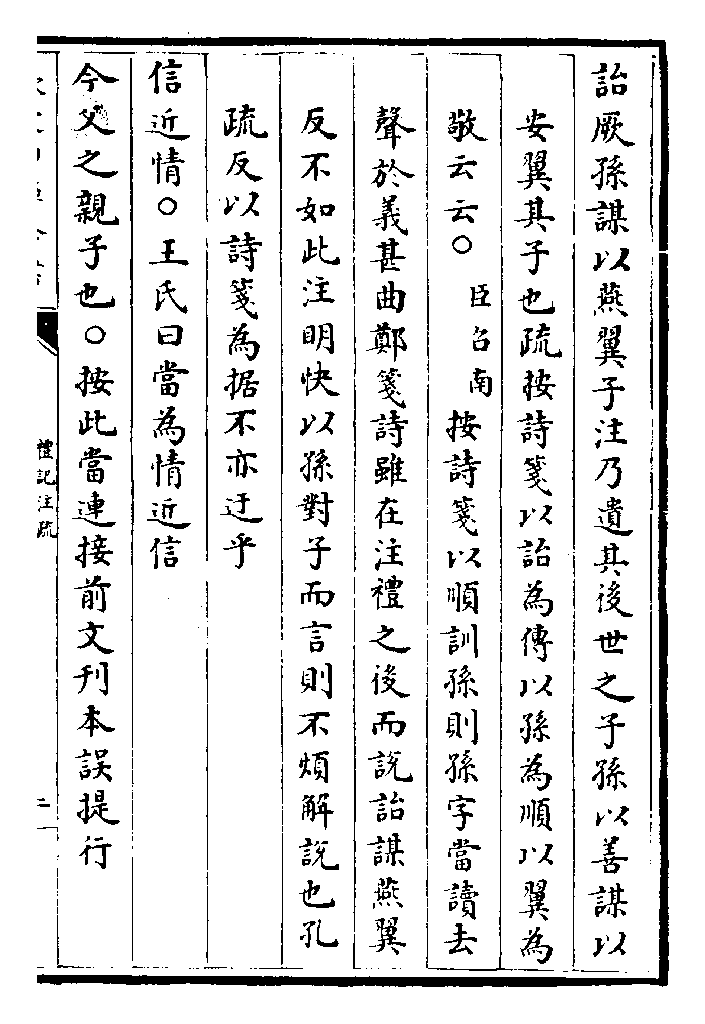 詒厥孫謀以燕翼子注乃遺其後世之子孫以善謀以
安翼其子也疏按詩箋以詒為傳以孫為順以翼為
敬云云○臣召南按詩箋以順訓孫則孫字當讀去
聲於義甚曲鄭箋詩雖在注禮之後而說詒謀燕翼
反不如此注明快以孫對子而言則不煩解說也孔
疏反以詩箋為据不亦迂乎
信近情○王氏曰當為情近信
今父之親子也○按此當連接前文刊本誤提行
禮記注疏